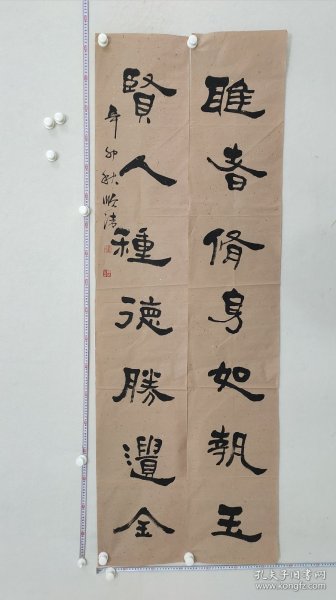 雅者脩身如執玉
賢人種德勝遺金
辛卯秋
孔夫子旧书网